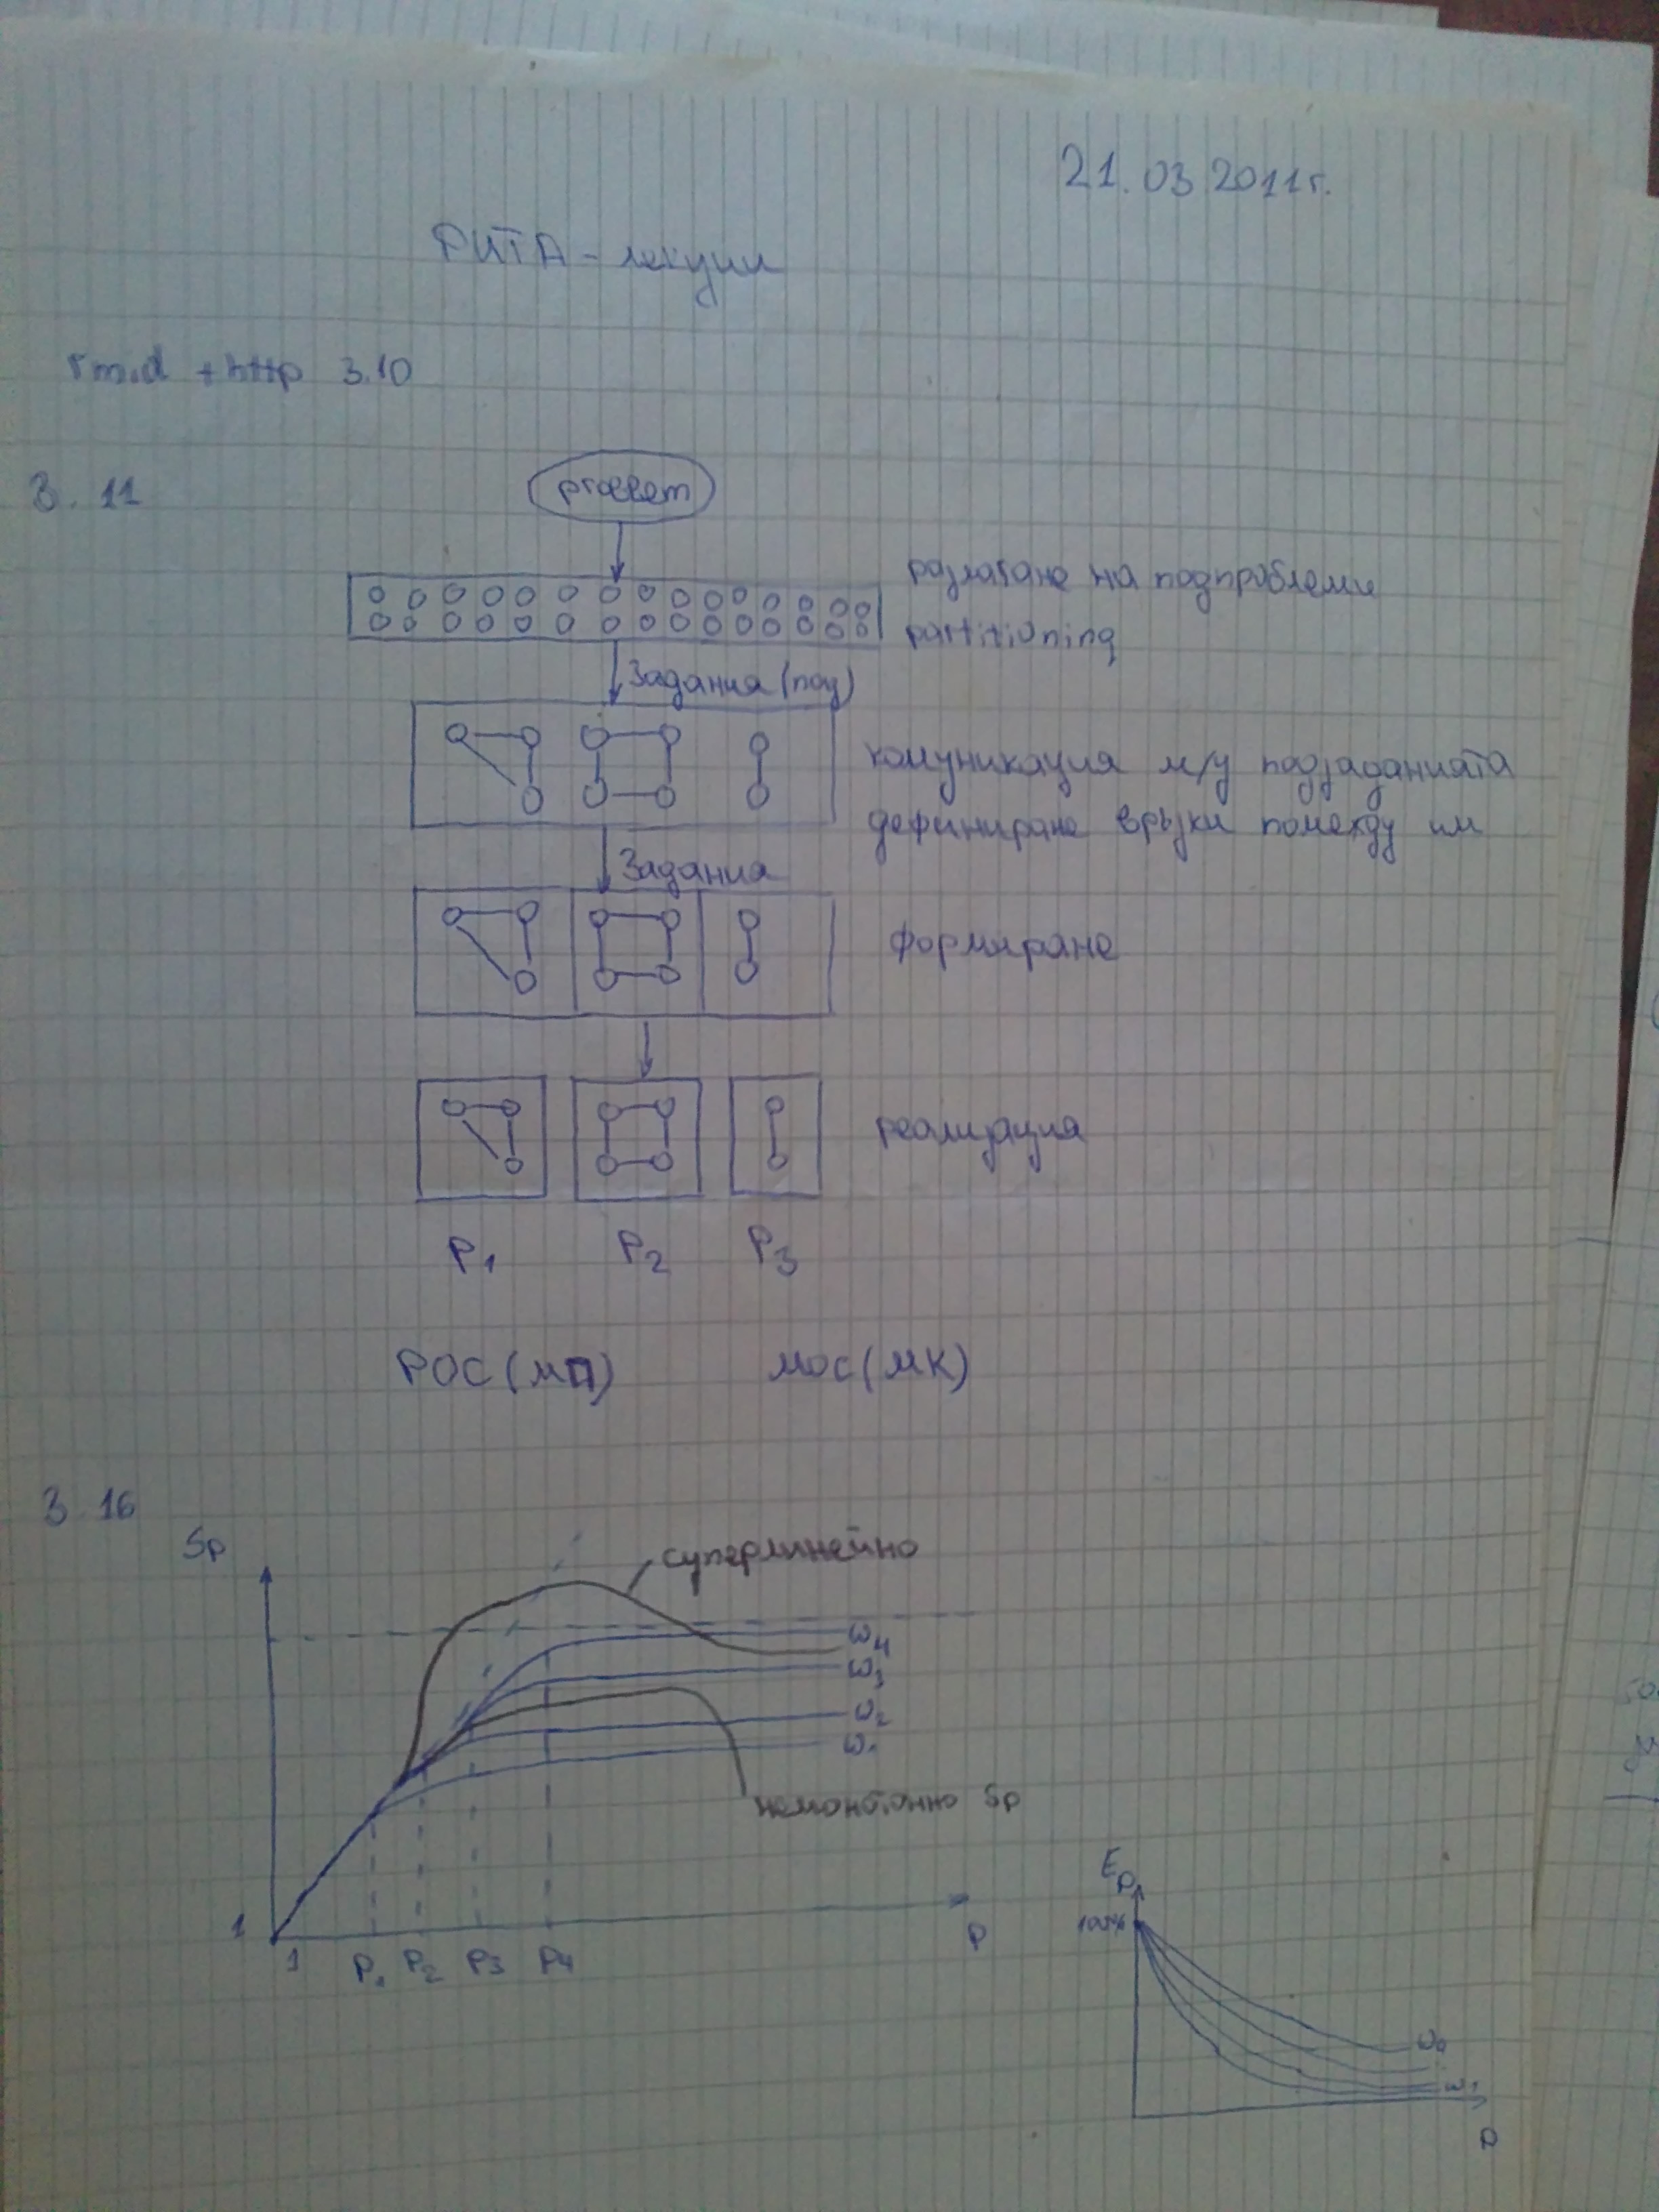 21.03 2011г.
РИТА - лекции
rmid + http 3.10
3. 11
problem
разлагане на подпроблеми
partitioning
Задания (под)
комуникация м/у подзаданията
дефиниране връзки помежду им
Задания
формиране
реализация
P1 P2 P3
РОС (МП) МОС (МК)
3. 16
Sp
суперлинейно
ω4
ω3
ω2
ω1
немонотонно Sp
1
1 P1 P2 P3 P4 P
Ep
100%
ω1
P